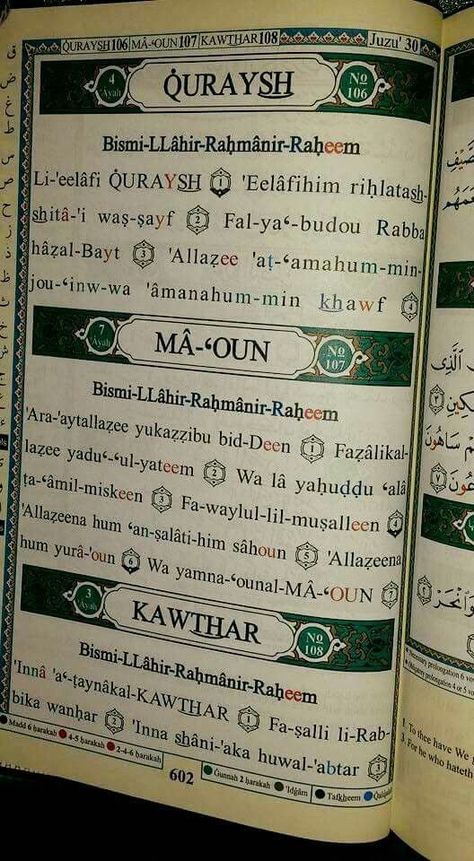 QURAYSH106 MÂ-‘OUN 107 KAWTHAR 108 Juzu' 30
4 Âyah
QURAYSH
No 106
Bismi-LLâhir-Raḥmânir-Raḥeem
Li-'eelâfi QURAYSH 1 'Eelâfihim riḥlatash-
shitâ-'i waṣ-ṣayf 2 Fal-ya‘-budou Rabba
hâẓal-Bayt 3 'Allaẓee 'aṭ-‘amahum-min-
jou-‘inw-wa 'âmanahum-min khawf 4
7 Âyah
MÂ-‘OUN
No 107
Bismi-LLâhir-Raḥmânir-Raḥeem
'Ara-'aytallaẓee yukaẓẓibu bid-Deen 1 Faẓâlikal-
laẓee yadu‘-‘ul-yateem 2 Wa lâ yaḥuḍḍu ‘alâ
ṭa-‘âmil-miskeen 3 Fa-waylul-lil-muṣalleen 4
'Allaẓeena hum ‘an-ṣalâti-him sâhoun 5 'Allaẓeena
hum yurâ-'oun 6 Wa yamna-‘ounal-MÂ-‘OUN 7
3 Âyah
KAWTHAR
No 108
Bismi-LLâhir-Raḥmânir-Raḥeem
'Innâ 'a‘-ṭaynâkal-KAWTHAR 1 Fa-ṣalli li-Rab-
bika wanḥar 2 'Inna shâni-'aka huwal-'abtar 3
Madd 6 ḥarakah 4-5 ḥarakah 2-4-6 ḥarakah
602
Gunnah 2 ḥarakah 'Idğâm Tafkheem
Necessary prolongation 6
Obligatory prolongation 4 or 5
1. To thee have We
3. For he who hateth